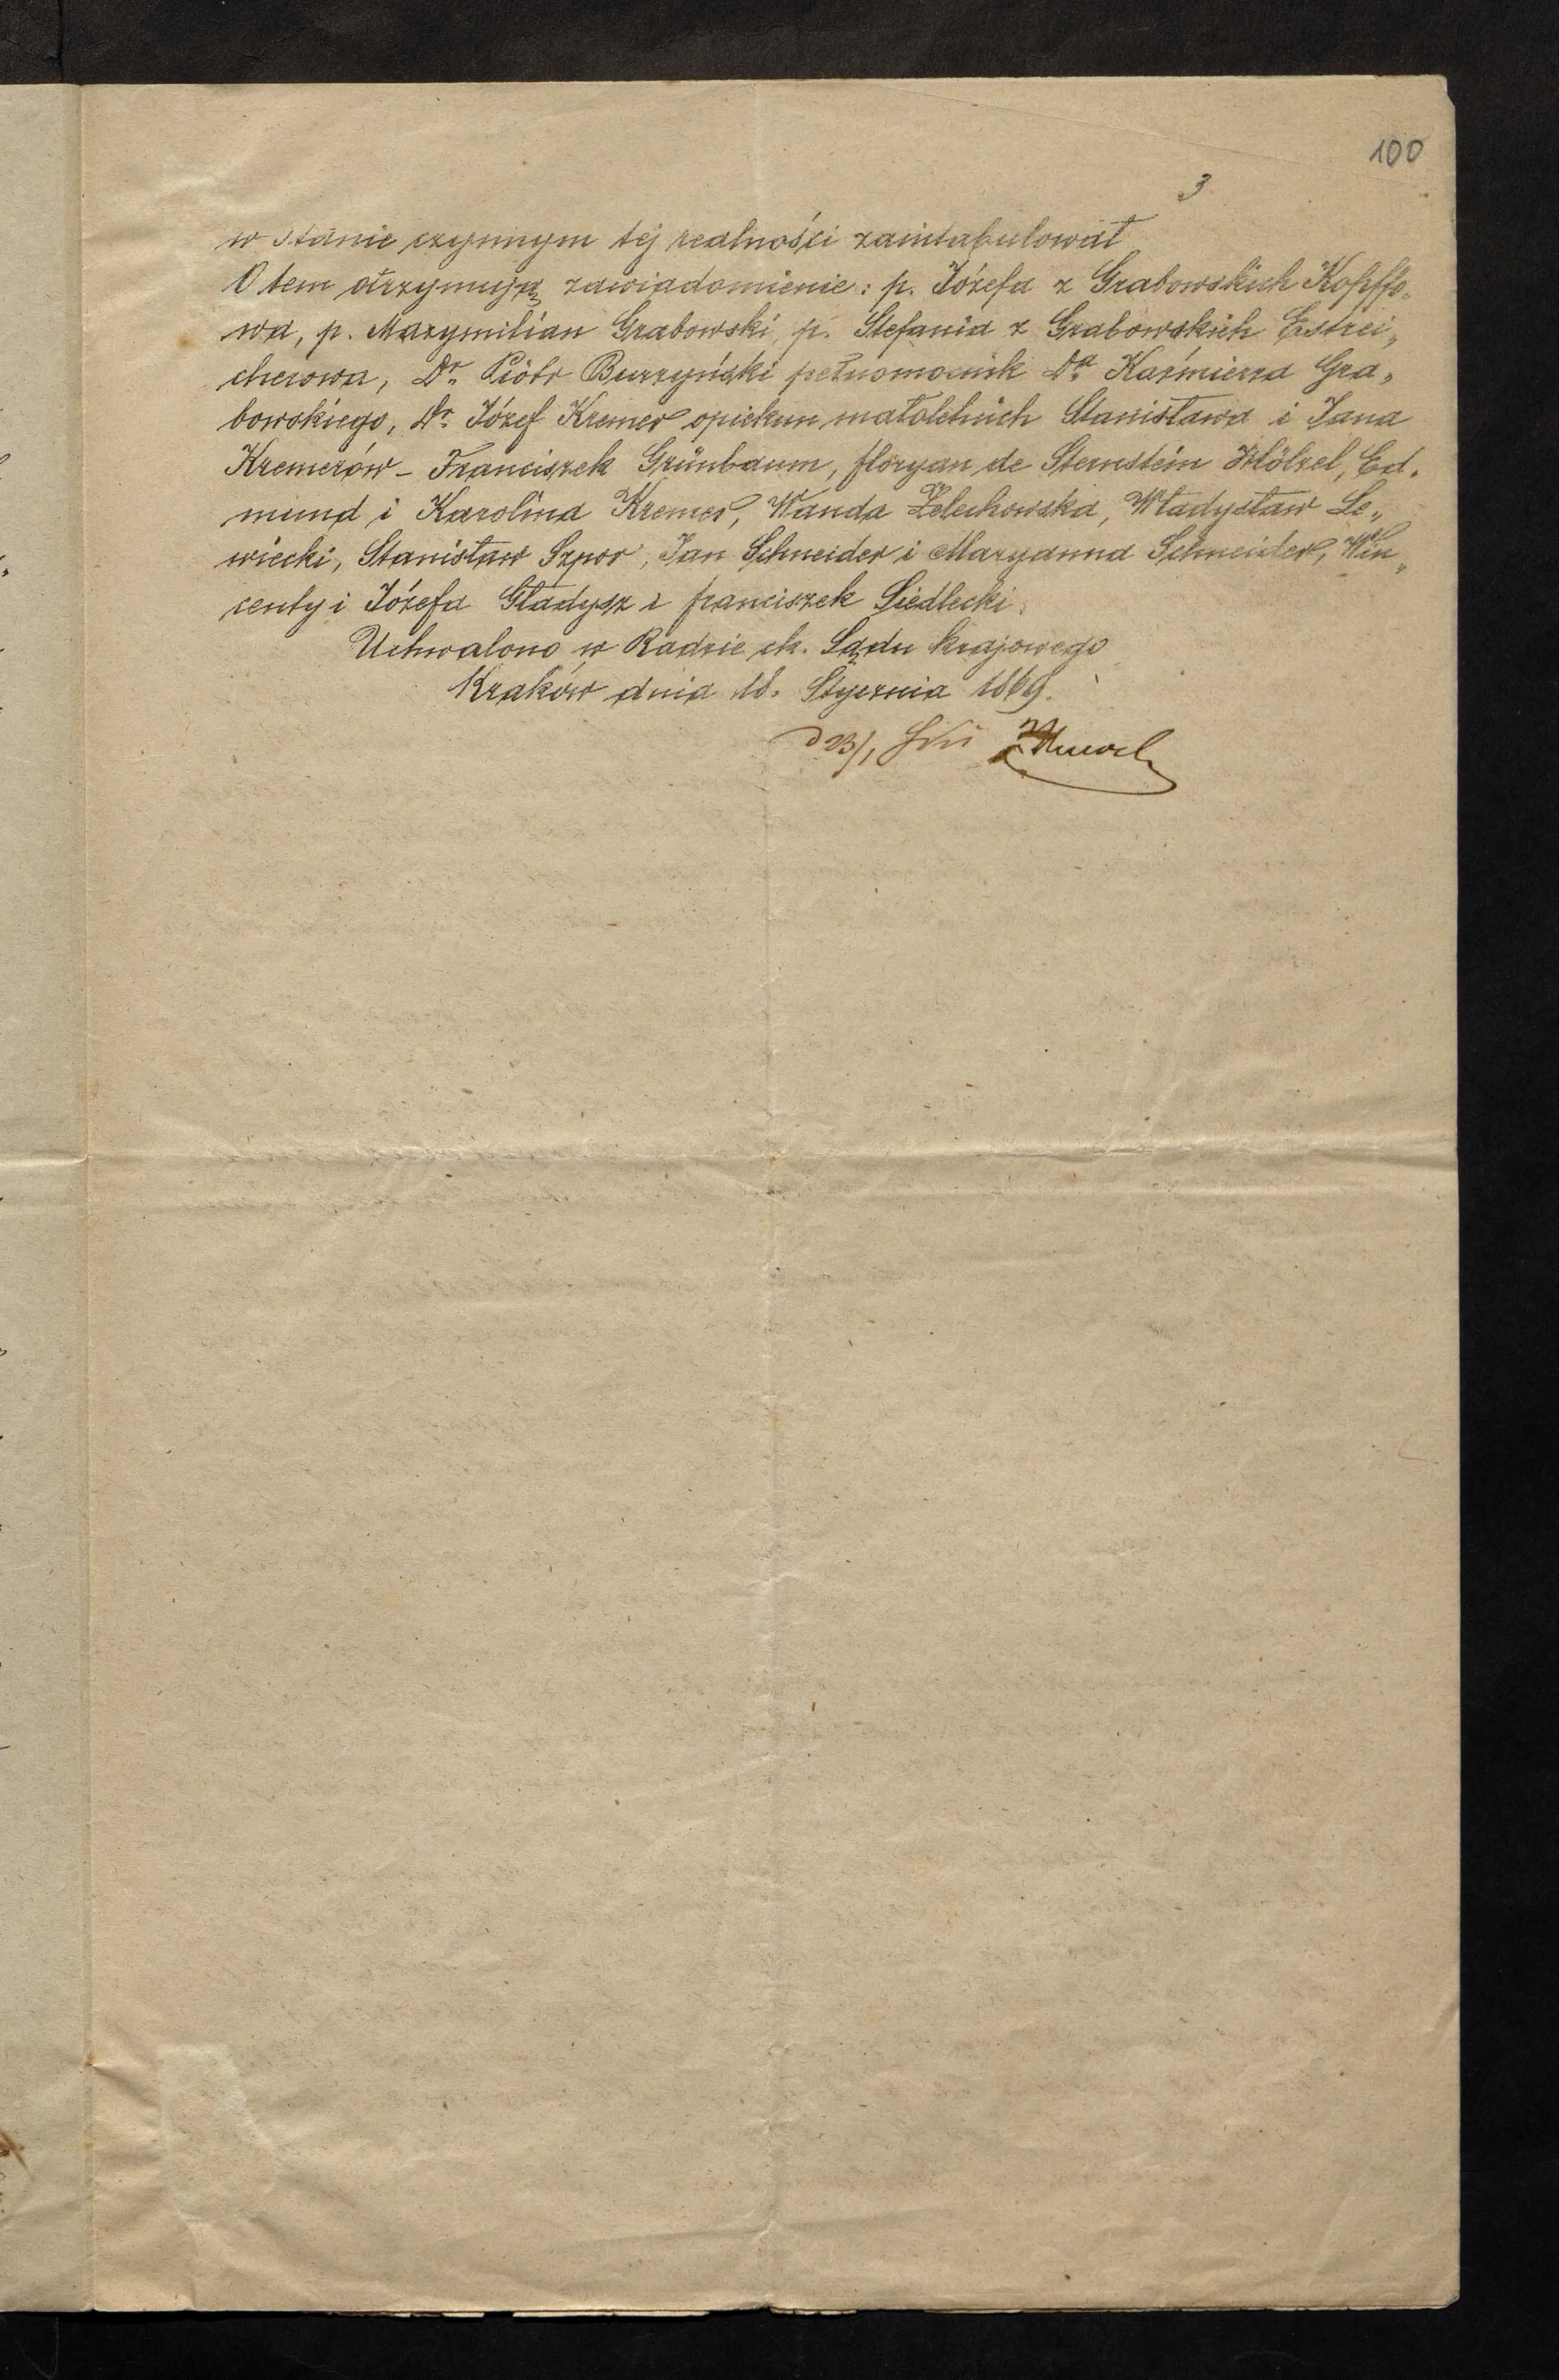 100
3
w stanie czynnym tej realności zaintabulował
O tem otrzymują zawiadomienie: p. Józefa z Grabowskich Kopffo„
wa, p. Maxymilian Grabowski, p. Stefania z Grabowskich Estrei„
cherowa, Dr. Piotr Burzyński pełnomocnik Dra Kaźmierza Gra„
bowskiego, Dr. Józef Kremer opiekun małoletnich Stanisława i Jana
Kremerów – Franciszek Grünbaum, floryan de Sternstein Hölzel, Ed„
mund i Karolina Kremer, Wanda Żelechowska, Władysław Le„
wiecki, Stanisław Szpor, Jan Schneider i Maryanna Schneider, Win„
centy i Józefa Gładysz i franciszek Siedlecki.
Uchwalono w Radzie ck. Sądu krajowego
Kraków dnia 18. Stycznia 1869.